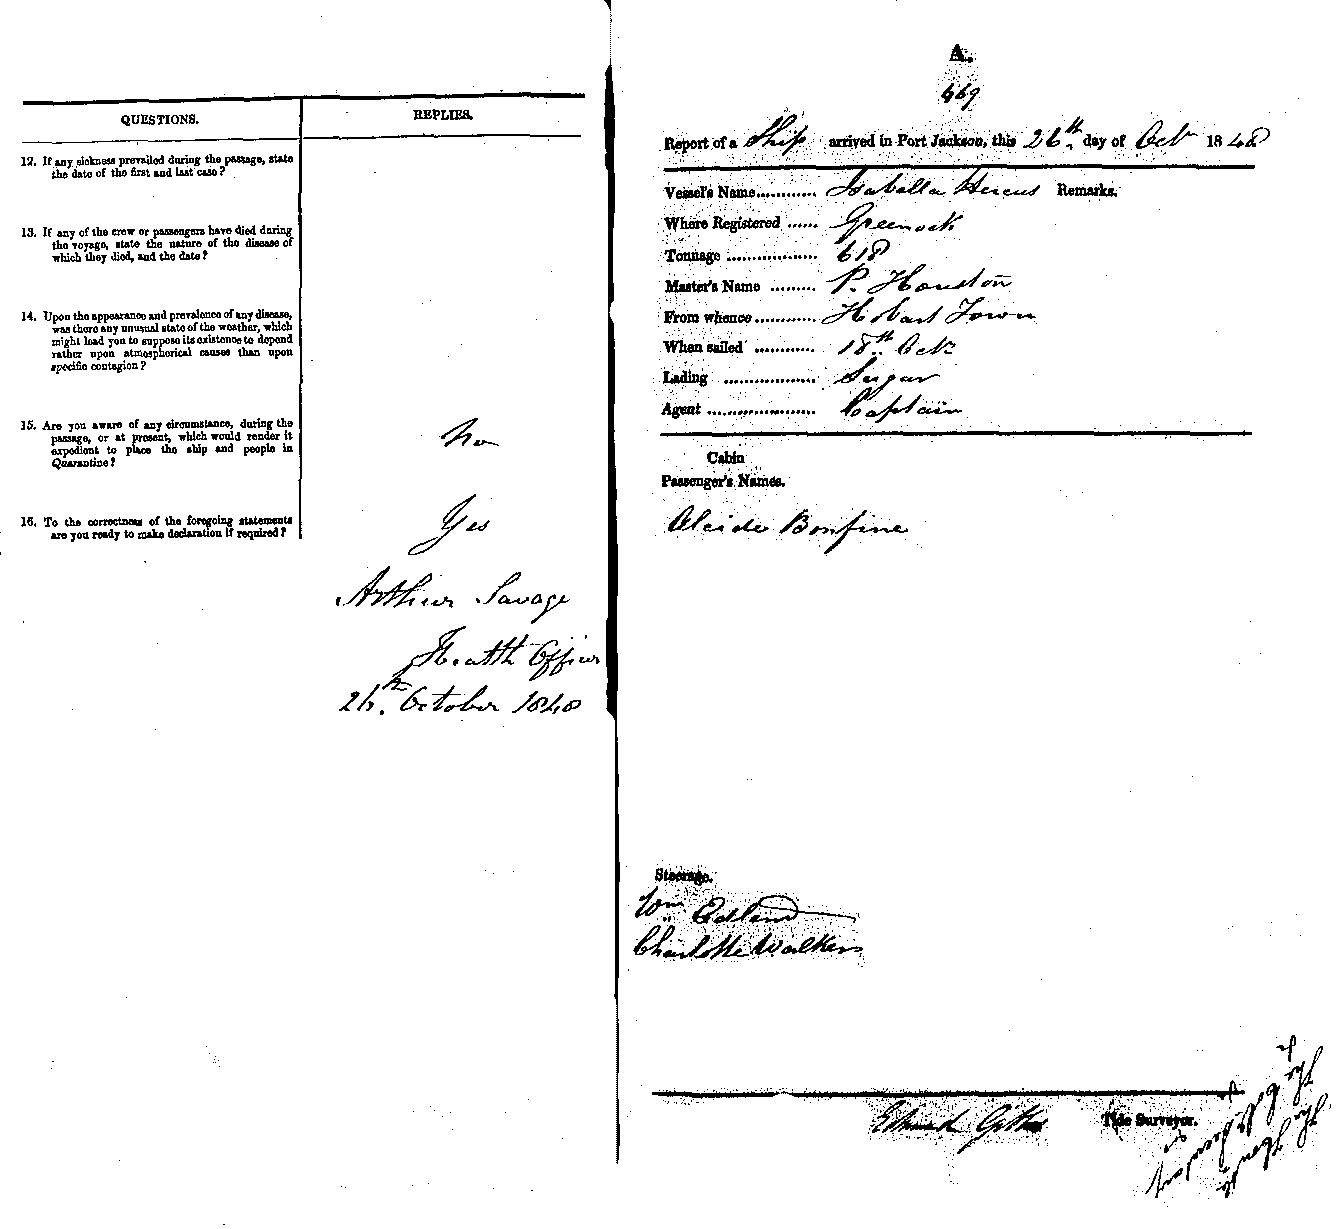 QUESTIONS.
REPLIES.
12. If any sickness prevailed during the passage, state
the date of the first and last case?
13. If any of the crew or passengers have died during
the voyage, state the nature of the disease of
which they died, and the date?
14. Upon the appearance and prevalence of any disease,
was there any unusual state of the weather, which
might lead you to suppose its existence to depend
rather upon atmospherical causes than upon
specific contagion?
15. Are you aware of any circumstance, during the
passage, or at present, which would render it
expedient to place the ship and people in
Quarantine?
No
16. To the correctness of the foregoing statements
are you ready to make declaration if required?
Yes
Arthur Savage
Health Officer
26th October 1848
A.
469
Report of a Ship arrived in Port Jackson, this 26th day of Oct 1848
Vessel's Name............ Isabella Hercus Remarks.
Where Registered ...... Greenock
Tonnage .................. 618
Master's Name ......... P. Houston
From whence............ Hobart Town
When sailed ............ 18th Oct
Lading .................. Sugar
Agent ..................... Captain
Cabin
Passenger's Names.
Alcide Bonfine
Steerage.
Wm Edland
Charlotte Walker
Edward Tide Surveyor.